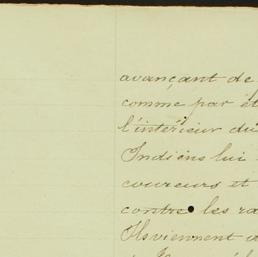 avançant de
comme par ét
l'intérieur du
Indiens lui
coureurs et
contre les ra
Ils viennent d